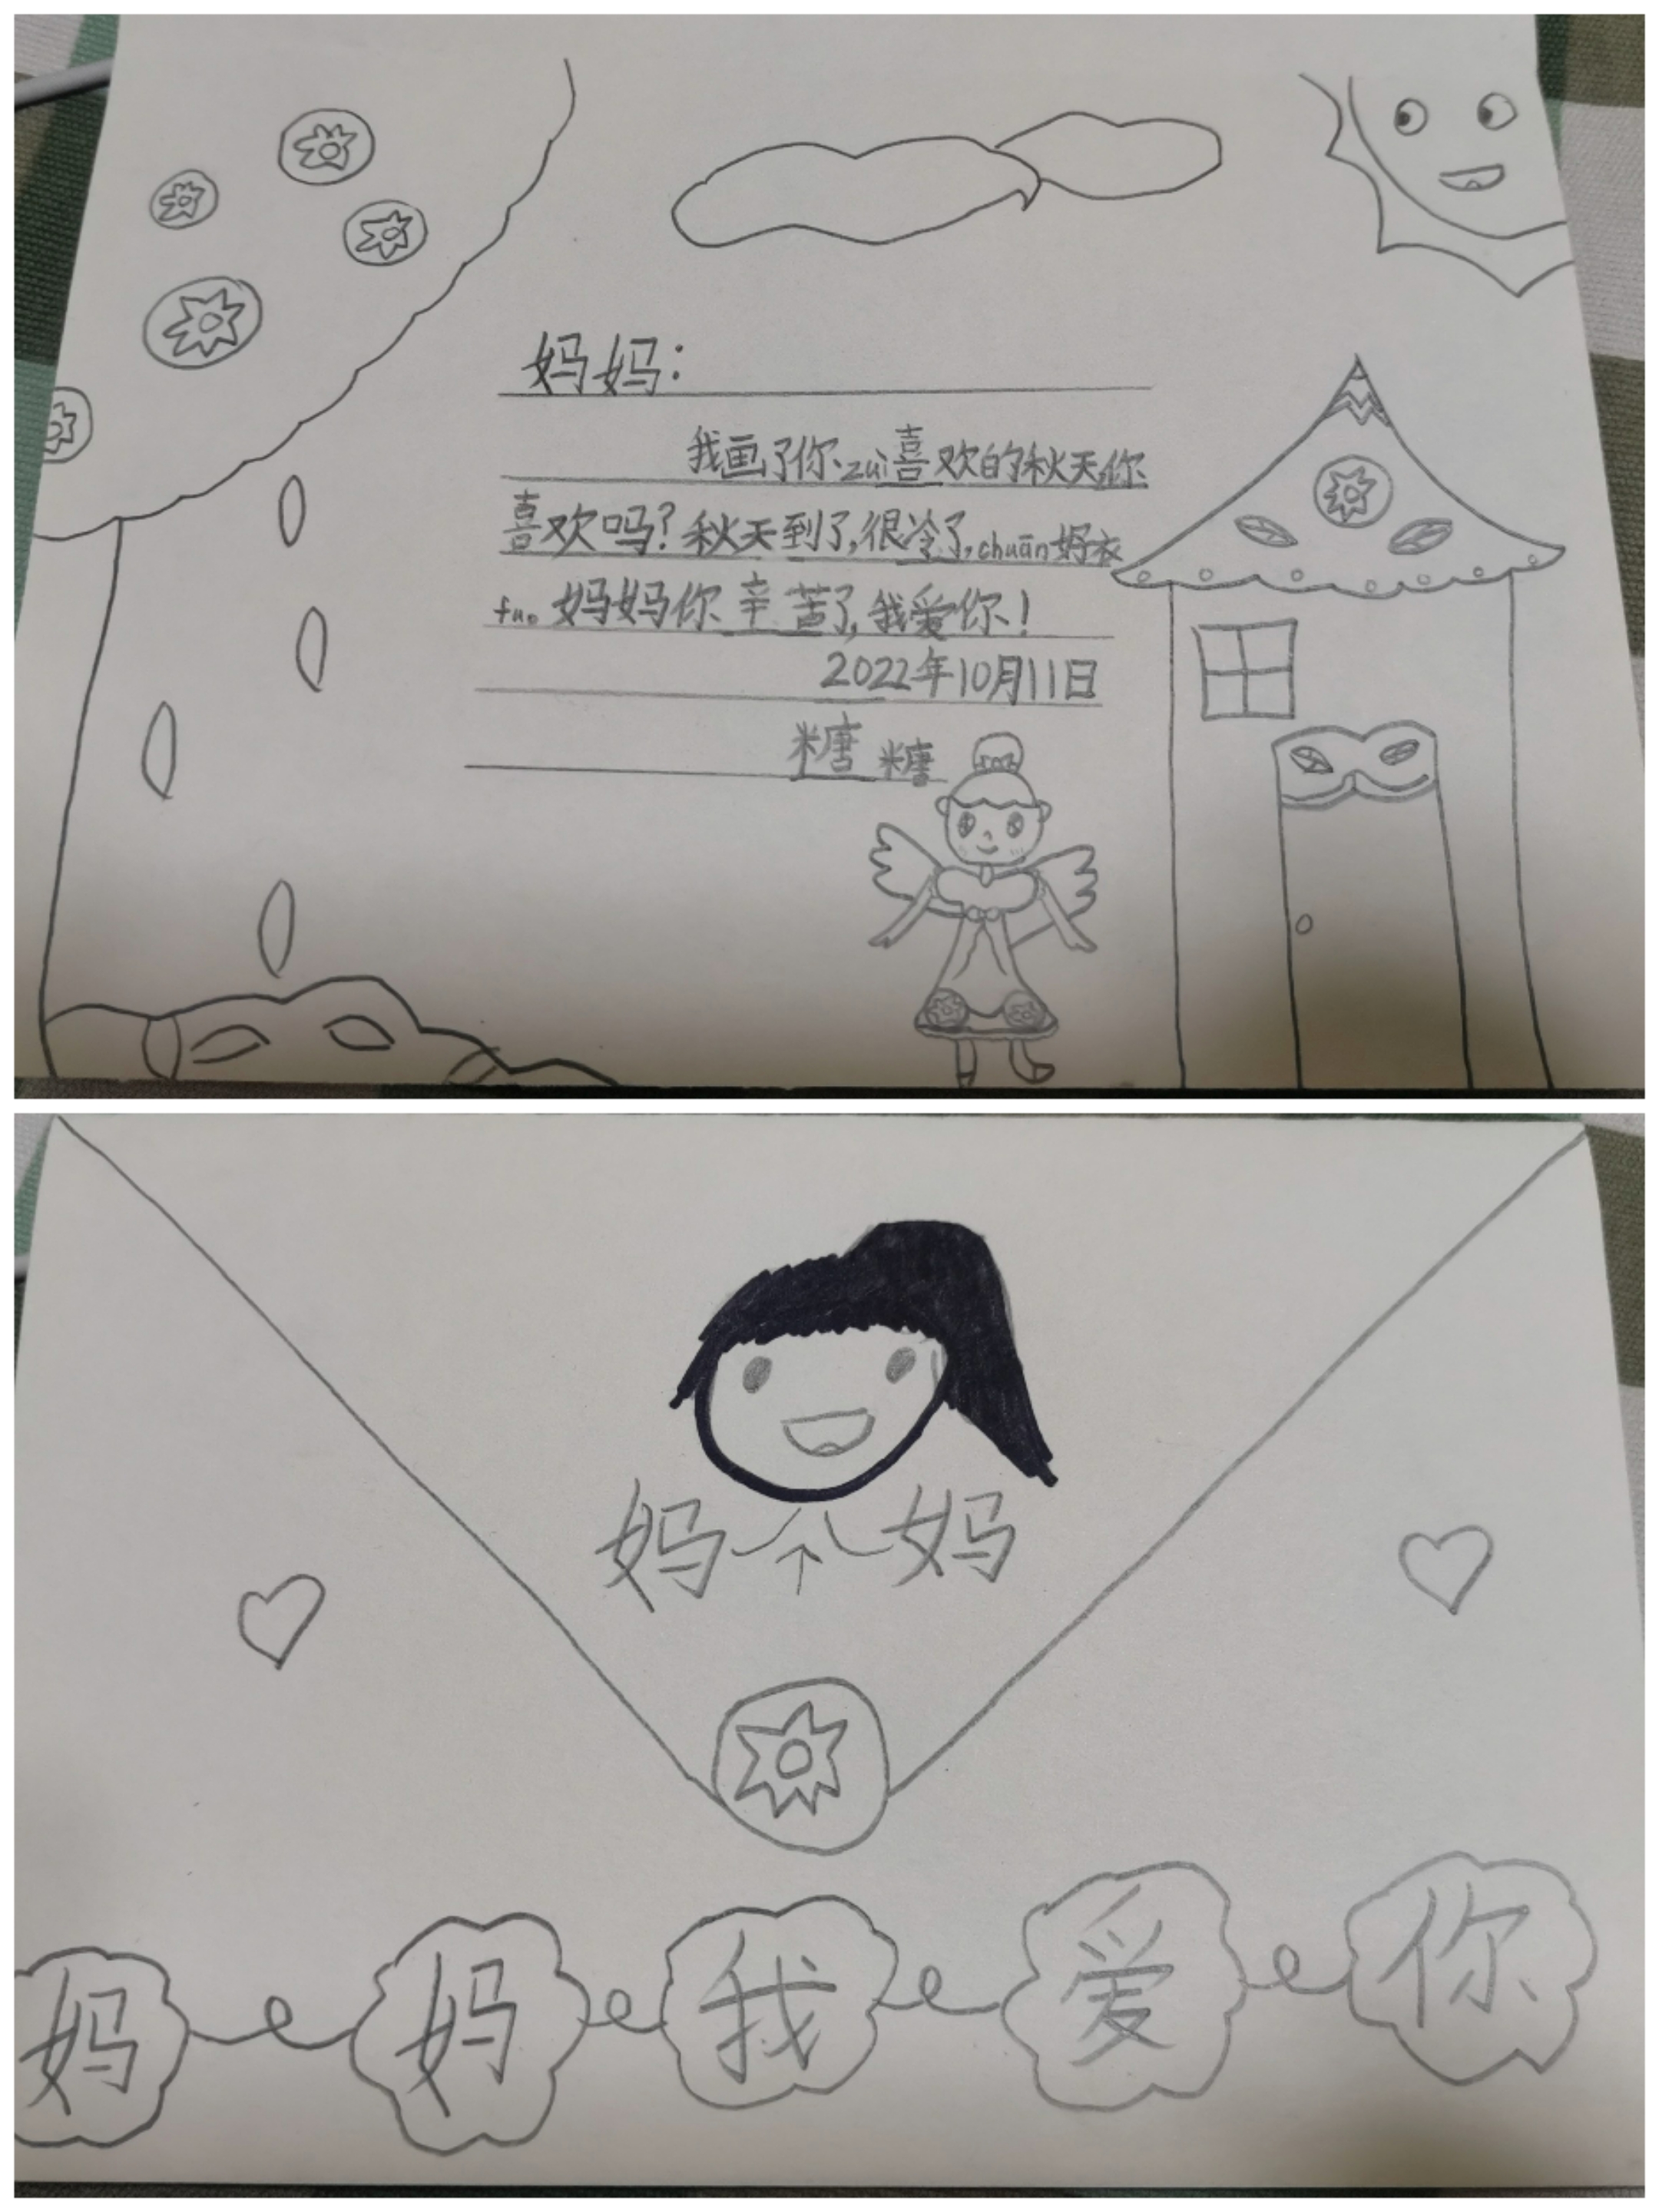 妈妈：
我画了你zuì喜欢的秋天你
喜欢吗？秋天到了，很冷了，chuān好衣
fu。妈妈你辛苦了，我爱你！
2022年10月11日
糖糖
妈妈
妈妈我爱你